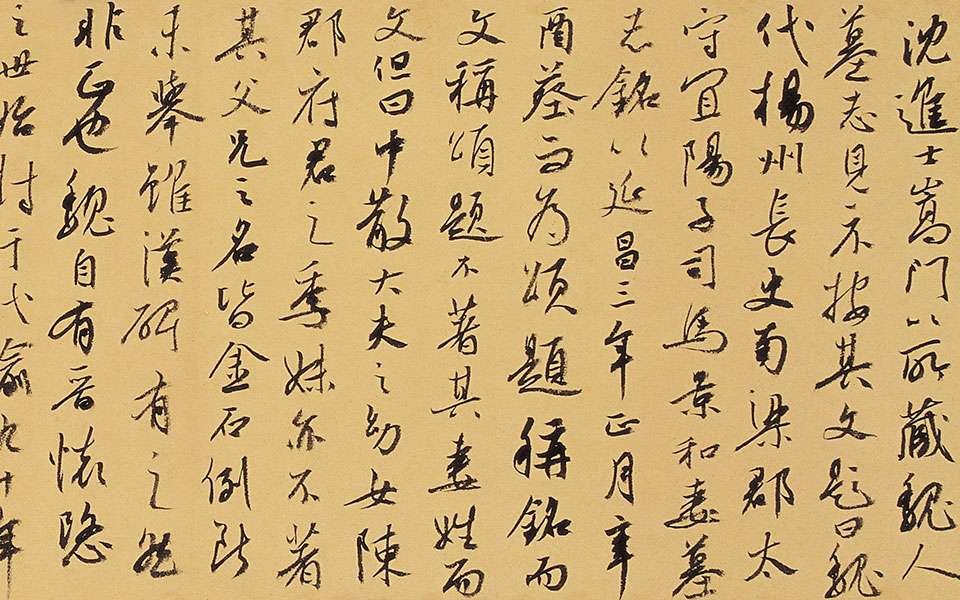 沈進士嵩門以所藏魏人
墓志見示按其文題曰魏
代楊州長史南梁郡太
守宜陽子司馬景和妻墓
志銘以延昌三年正月辛
酉葬而為頌題稱銘而
文稱頌題不著其妻姓而
文但曰中散大夫之幼女陳
郡府君之季妹亦不著
其父兄之名皆金石例所
未舉雖漢碑有之然
非正也魏自有晉懷愍
之世始封于代九十年